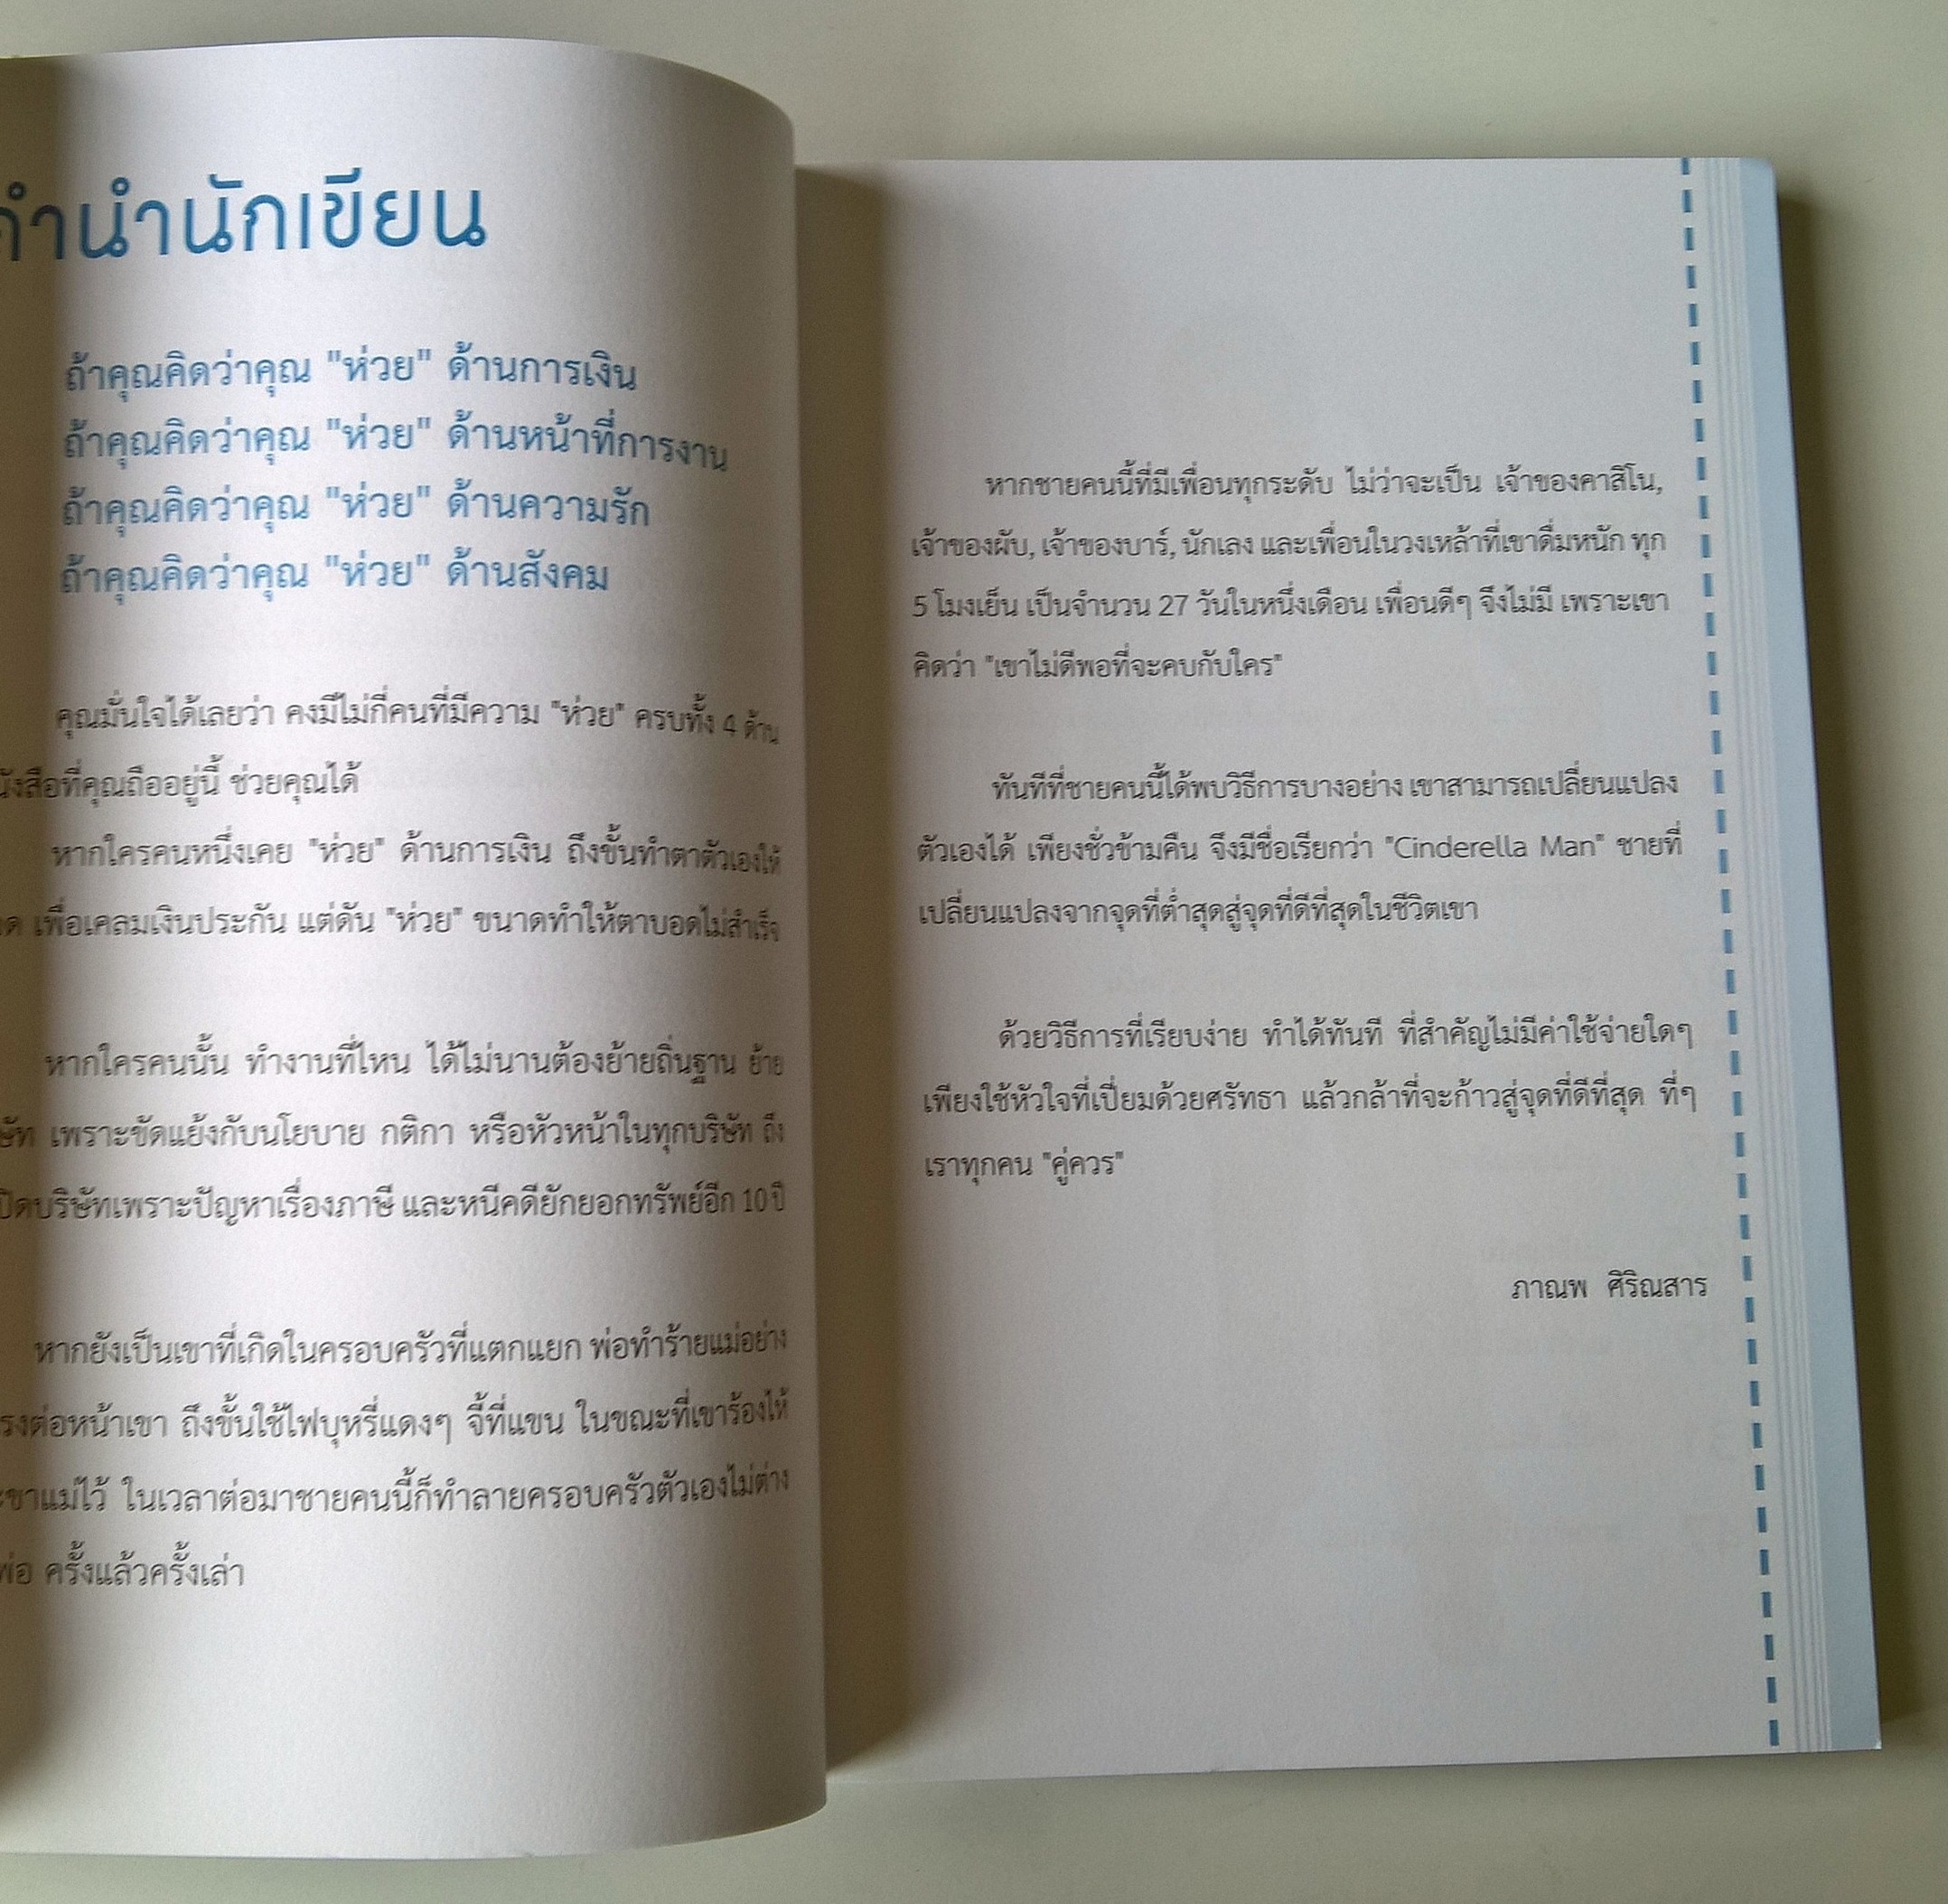 คำนำนักเขียน
ถ้าคุณคิดว่าคุณ "ห่วย" ด้านการเงิน
ถ้าคุณคิดว่าคุณ "ห่วย" ด้านหน้าที่การงาน
ถ้าคุณคิดว่าคุณ "ห่วย" ด้านความรัก
ถ้าคุณคิดว่าคุณ "ห่วย" ด้านสังคม
คุณมั่นใจได้เลยว่า คงมีไม่กี่คนที่มีความ "ห่วย" ครบทั้ง 4 ด้าน
ังสือที่คุณถืออยู่นี้ ช่วยคุณได้
หากใครคนหนึ่งเคย "ห่วย" ด้านการเงิน ถึงขั้นทำตาตัวเองให้
ด เพื่อเคลมเงินประกัน แต่ดัน "ห่วย" ขนาดทำให้ตาบอดไม่สำเร็จ
หากใครคนนั้น ทำงานที่ไหน ได้ไม่นานต้องย้ายถิ่นฐาน ย้าย
ษัท เพราะขัดแย้งกับนโยบาย กติกา หรือหัวหน้าในทุกบริษัท ถึง
ปิดบริษัทเพราะปัญหาเรื่องภาษี และหนีคดียักยอกทรัพย์อีก 10 ปี
หากยังเป็นเขาที่เกิดในครอบครัวที่แตกแยก พ่อทำร้ายแม่อย่าง
รงต่อหน้าเขา ถึงขั้นใช้ไฟบุหรี่แดงๆ จี้ที่แขน ในขณะที่เขาร้องไห้
ะขาแม่ไว้ ในเวลาต่อมาชายคนนี้ก็ทำลายครอบครัวตัวเองไม่ต่าง
พ่อ ครั้งแล้วครั้งเล่า
หากชายคนนี้ที่มีเพื่อนทุกระดับ ไม่ว่าจะเป็น เจ้าของคาสิโน,
เจ้าของผับ, เจ้าของบาร์, นักเลง และเพื่อนในวงเหล้าที่เขาดื่มหนัก ทุก
5 โมงเย็น เป็นจำนวน 27 วันในหนึ่งเดือน เพื่อนดีๆ จึงไม่มี เพราะเขา
คิดว่า "เขาไม่ดีพอที่จะคบกับใคร"
ทันทีที่ชายคนนี้ได้พบวิธีการบางอย่าง เขาสามารถเปลี่ยนแปลง
ตัวเองได้ เพียงชั่วข้ามคืน จึงมีชื่อเรียกว่า "Cinderella Man" ชายที่
เปลี่ยนแปลงจากจุดที่ต่ำสุดสู่จุดที่ดีที่สุดในชีวิตเขา
ด้วยวิธีการที่เรียบง่าย ทำได้ทันที ที่สำคัญไม่มีค่าใช้จ่ายใดๆ
เพียงใช้หัวใจที่เปี่ยมด้วยศรัทธา แล้วกล้าที่จะก้าวสู่จุดที่ดีที่สุด ที่ๆ
เราทุกคน "คู่ควร"
ภาณพ ศิริณสาร